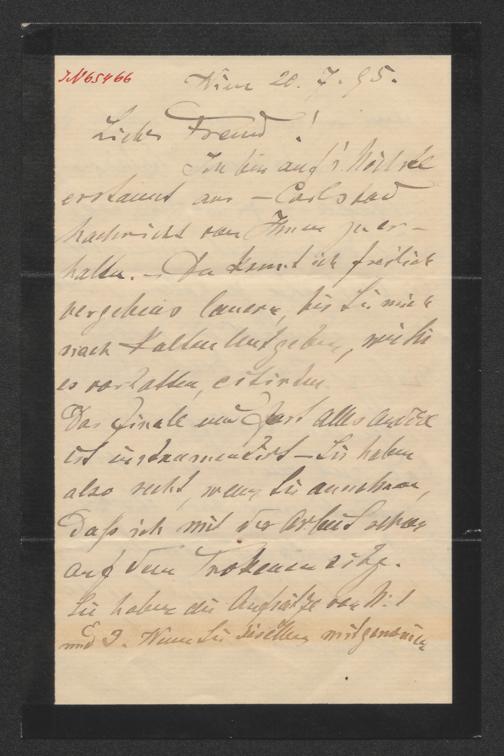 IN 65466
Wien 20. 7. 95.
Lieber Freund!
Ich bin auf's Höchste
erstaunt aus – Carlsbad
Nachricht von Ihnen zu er-
halten. – Da konnt ich freilich
vergebens lauern, bis Sie mich
nach Kaltenleutgeben, wie Sie
es vorhatten, citirten
Das Finale und fast alles andere
ist instrumentirt – Sie haben
also recht, wenn Sie annehmen,
daß ich mit der Arbeit schon
auf dem Trokenen sitze.
Sie haben die Aufsätze von N: 1
und 2. Wenn Sie dieselben mitgenommen